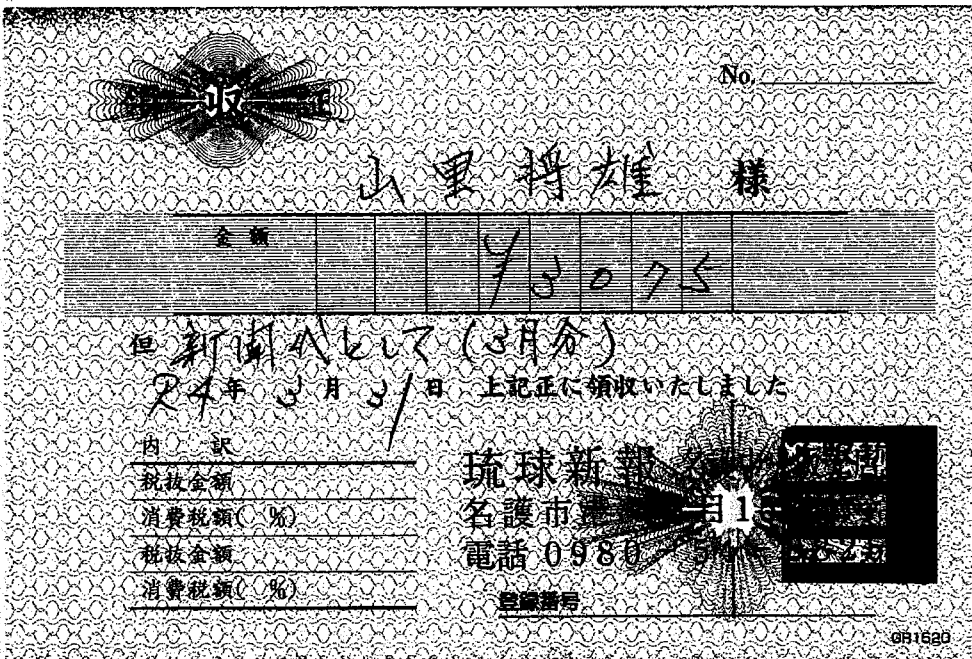 No.
山里将雄 様
金額 ¥3075
但 新聞代として(3月分)
R4年3月31日 上記正に領収いたしました
内訳
税抜金額
消費税額( %)
税抜金額
消費税額( %)
琉球新報
名護市
電話 0980
登録番号
GR1520